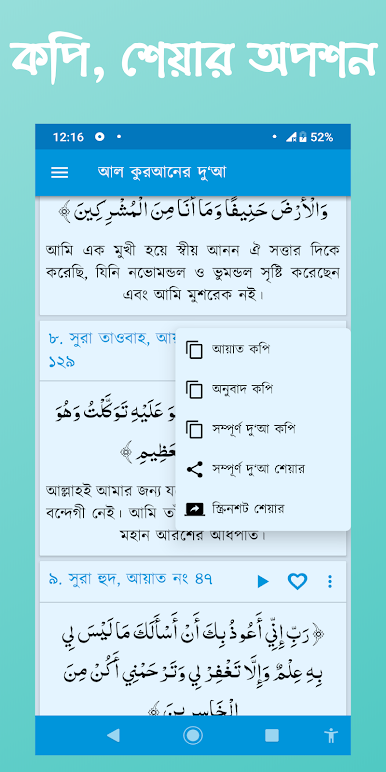 কপি, শেয়ার অপশন
12:16
52%
আল কুরআনের দু‘আ
وَالْأَرْضَ حَنِيفًا وَمَا أَنَا مِنَ الْمُشْرِكِينَ ﴾
আমি এক মুখী হয়ে স্বীয় আনন ঐ সত্তার দিকে
করেছি, যিনি নভোমন্ডল ও ভুমন্ডল সৃষ্টি করেছেন
এবং আমি মুশরেক নই।
৮. সুরা তাওবাহ,
১২৯
আয়াত কপি
অনুবাদ কপি
সম্পূর্ণ দু‘আ কপি
সম্পূর্ণ দু‘আ শেয়ার
স্ক্রিনশট শেয়ার
عَلَيْهِ تَوَكَّلْتُ وَهُوَ
﴾
আল্লাহই আমার জন্য
বন্দেগী নেই। আমি
মহান আরশের অধিপতি।
৯. সুরা হুদ, আয়াত নং ৪৭
﴿ رَبِّ إِنِّي أَعُوذُ بِكَ أَنْ أَسْأَلَكَ مَا لَيْسَ لِي
بِهِ عِلْمٌ وَإِلَّا تَغْفِرْ لِي وَتَرْحَمْنِي أَكُنْ مِنَ
الْخَاسِرِينَ ﴾